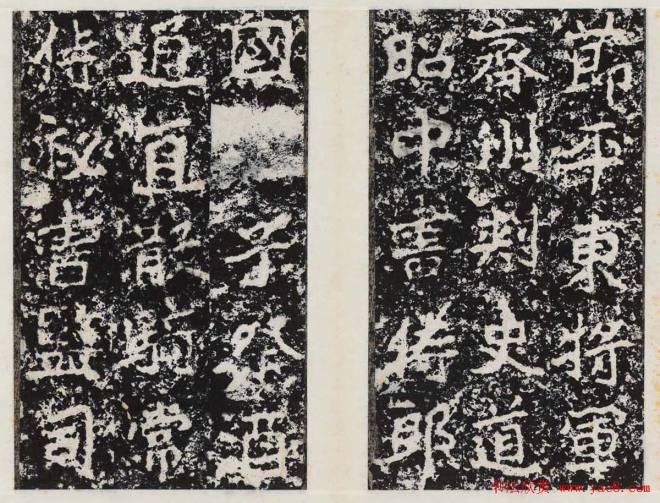 節平東將軍
齊州刺史道
昭中書侍郎
國子祭酒
通直散騎常
侍秘書監司
书法欣赏 www.yac8.com